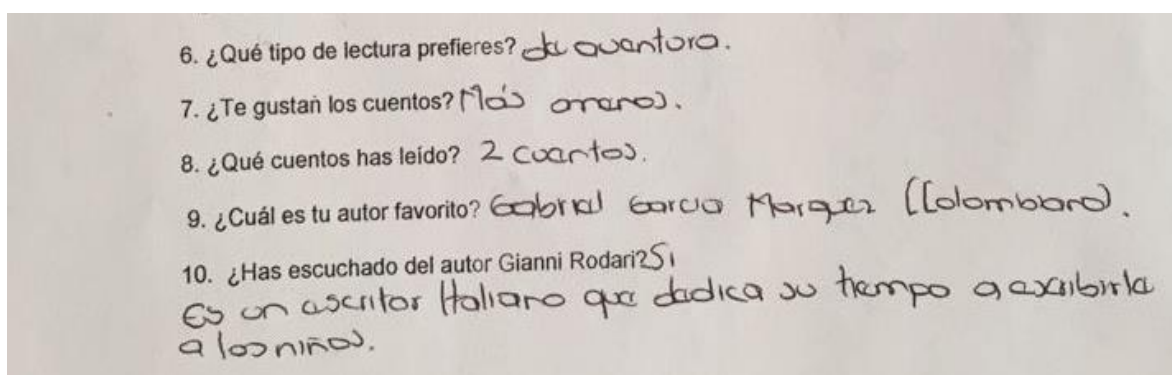 6. ¿Qué tipo de lectura prefieres? de aventura.
7. ¿Te gustan los cuentos? Más o menos.
8. ¿Qué cuentos has leído? 2 cuentos.
9. ¿Cuál es tu autor favorito? Gabriel Garcia Marquez (Colombiano).
10. ¿Has escuchado del autor Gianni Rodari? Si
Es un escritor Italiano que dedica su tiempo a escribirle
a los niños.